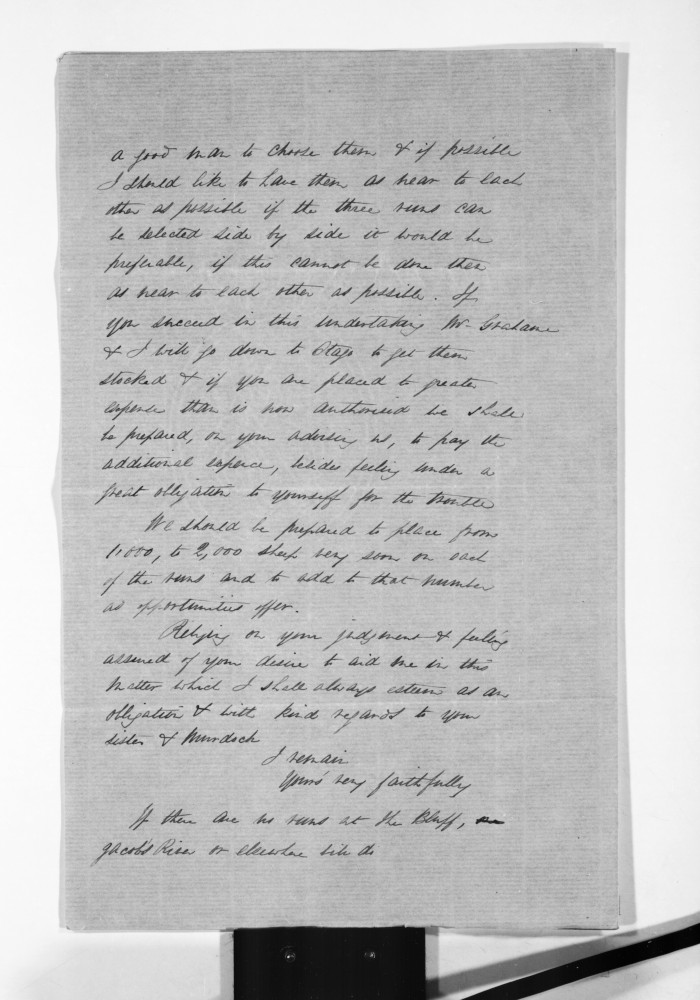 a good man to choose them & if possible
I should like to have them as near to each
other as possible if the three runs can
be selected side by side it would be
preferable, if this cannot be done then
as near to each other as possible. If
you succeed in this undertaking Mr. Grahame
& I will go down to Otago to get them
stocked & if you are placed to greater
expense than is now authorised we shall
be prepared, on your advising us, to pay the
additional expence, besides feeling under a
great obligation to yourself for the trouble
We should be prepared to place from
1,000, to 2,000 sheep very soon on each
of the runs and to add to that number
as opportunities offer.
Relying on your judgment & feeling
assured of your desire to aid me in this
matter which I shall always esteem as an
obligation & with kind regards to your
sister & Murdoch
I remain
Yours very faithfully
If there are no runs at the Bluff,
Jacob's River or elsewhere will do